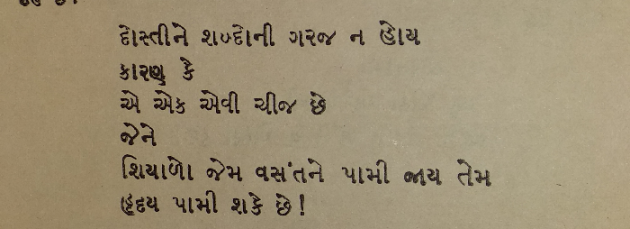 દોસ્તીને શબ્દોની ગરજ ન હોય
કારણ કે
એ એક એવી ચીજ છે
જેને
શિયાળો જેમ વસંતને પામી જાય તેમ
હૃદય પામી શકે છે!